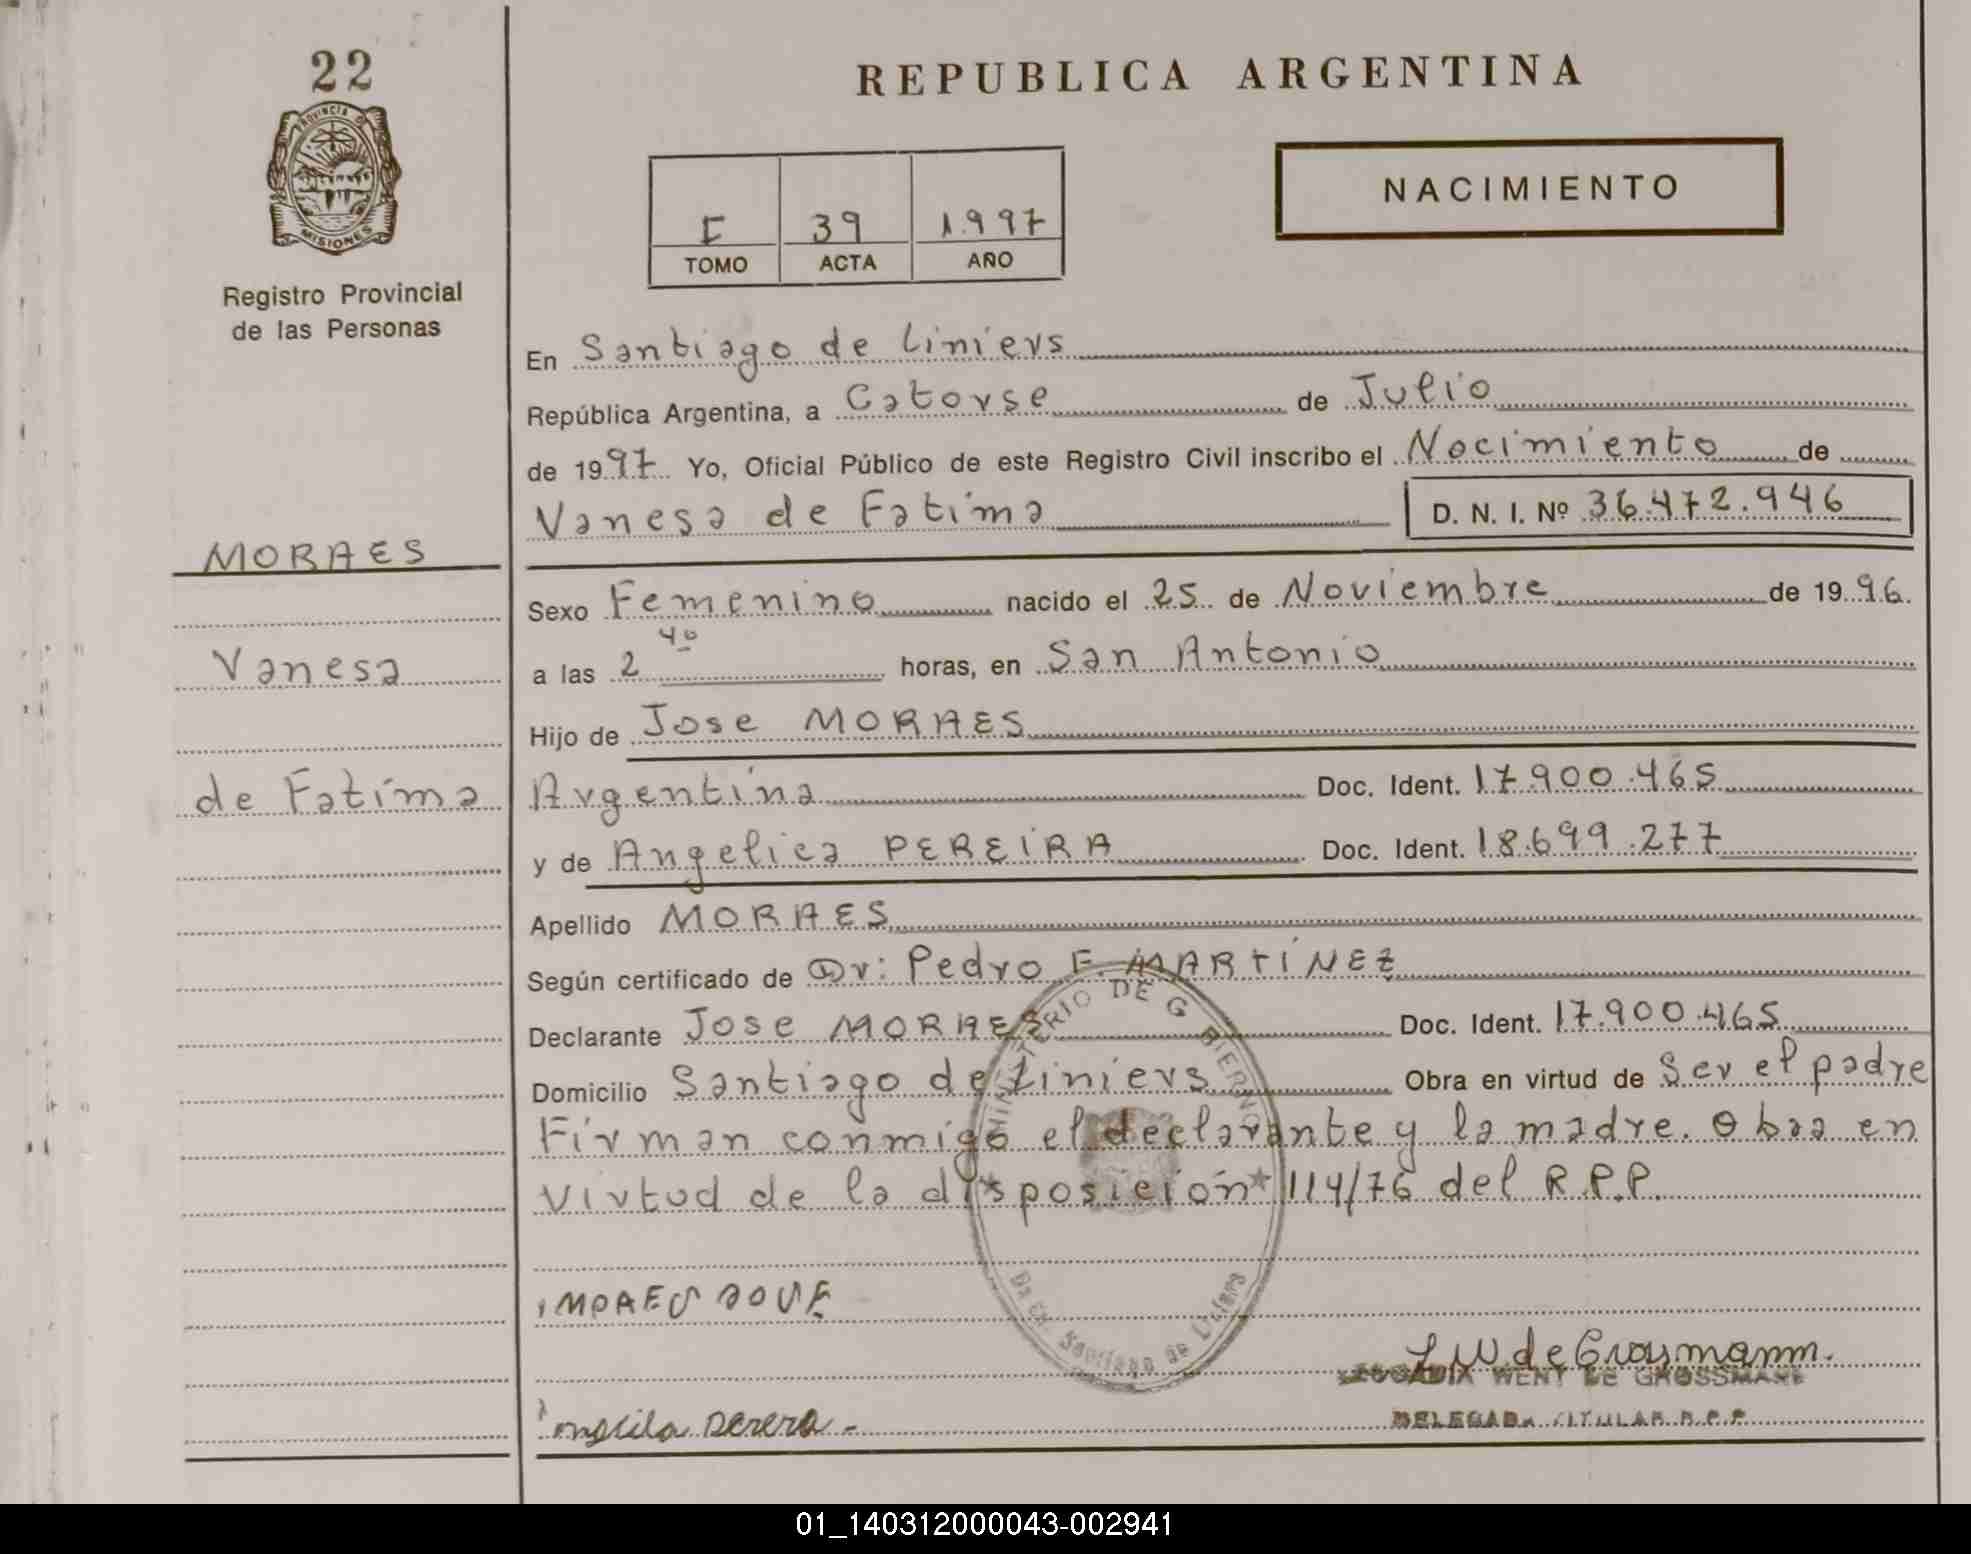 22
PROVINCIA D
MISIONES
Registro Provincial
de las Personas
MORAES
Vanesa
de Fatima
REPUBLICA ARGENTINA
I 39 1.997
TOMO ACTA AÑO
NACIMIENTO
En Santiago de Liniers
República Argentina, a Catorse de Julio
de 1997 Yo, Oficial Público de este Registro Civil inscribo el Nacimiento de
Vanesa de Fatima D. N. I. Nº 36.472.946
Sexo Femenino nacido el 25 de Noviembre de 1996.
a las 2 40 horas, en San Antonio
Hijo de Jose MORAES
Argentina Doc. Ident. 17.900.465
y de Angelica PEREIRA Doc. Ident. 18.699.277
Apellido MORAES
Según certificado de Dr: Pedro F. MARTÍNEZ
Declarante Jose MORAES Doc. Ident. 17.900.465
Domicilio Santiago de Liniers Obra en virtud de Ser el padre
Firman conmigo el declarante y la madre. Obra en
virtud de la disposición 114/76 del R.P.P.
MINISTERIO DE G BIERNO
Santiago de Liniers
L W de Grossmann.
WENT DE GROSSMANN
DELEGADA TITULAR R.P.P.
01_140312000043-002941